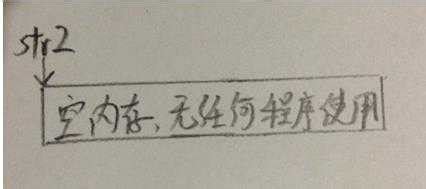 str2
空内存、无任何程序使用